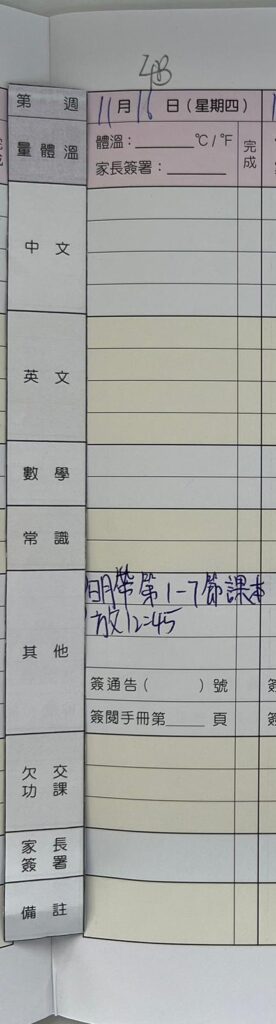 4B
第 週
11月16日(星期四)
量體溫
體溫:______℃/℉
家長簽署:______
完成
中文
英文
數學
常識
其他
明帶第1-7節課本
放12:45
簽通告( )號
簽閱手冊第____頁
欠交
功課
家長
簽署
備註